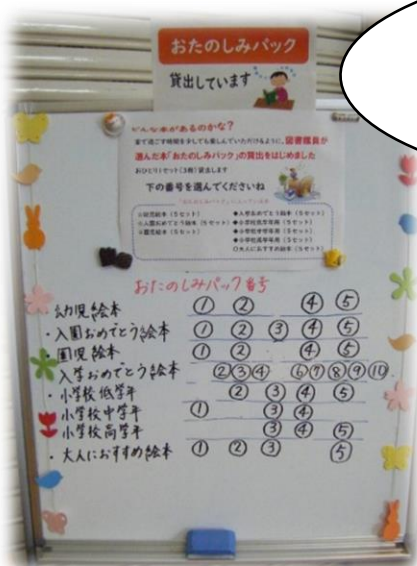 おたのしみパック
貸出しています
どんな本があるのかな?
家で過ごす時間を少しでも楽しんでいただけるように、図書職員が
選んだ本「おたのしみパック」の貸出をはじめました
おひとり1セット(3冊)貸出します
下の番号を選んでくださいね
おたのしみパック番号
幼児絵本 ① ② ④ ⑤
・入園おめでとう絵本 ① ② ③ ④ ⑤
・園児絵本 ① ② ④ ⑤
入学おめでとう絵本 ② ③ ④ ⑥ ⑦ ⑧ ⑨ ⑩
・小学校低学年 ② ③ ④ ⑤
・小学校中学年 ① ③ ④
・小学校高学年 ③ ④ ⑤
・大人におすすめ絵本 ① ② ③ ⑤